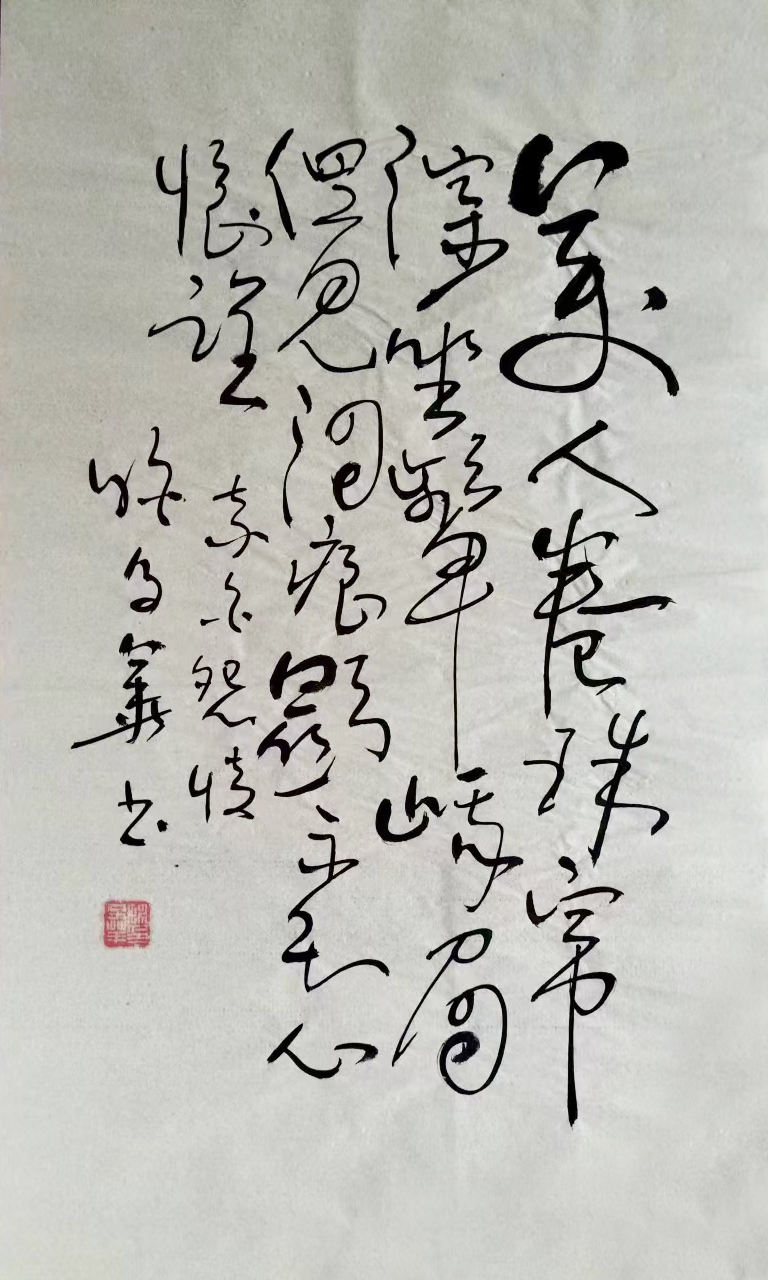 美人卷珠帘
深坐颦峨眉
但见泪痕湿不知心
恨谁 李白怨情
书